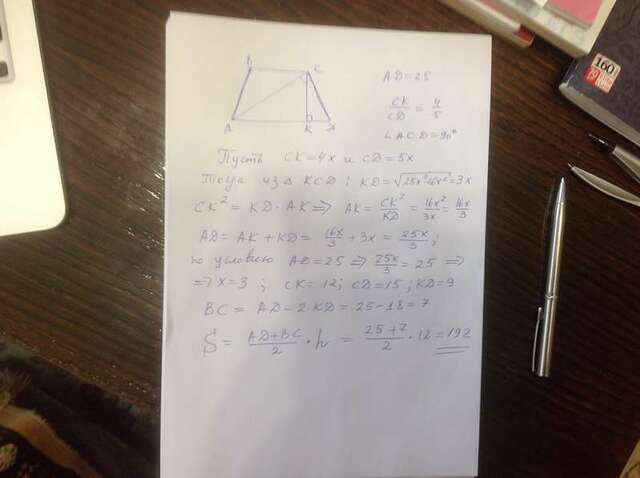 160
B
C
A
K
D
AD = 25
CK/CD = 4/5
∠ACD = 90°
Пусть CK = 4x и CD = 5x
Тогда из Δ KCD : KD = √25x²-16x² = 3x
CK² = KD · AK ⇒ AK = CK²/KD = 16x²/3x = 16x/3
AD = AK + KD = 16x/3 + 3x = 25x/3 ;
по условию AD = 25 ⇒ 25x/3 = 25 ⇒
⇒ x = 3 ; CK = 12 ; CD = 15 ; KD = 9
BC = AD - 2·KD = 25 - 18 = 7
S = AD+BC/2 · h = 25+7/2 · 12 = 192